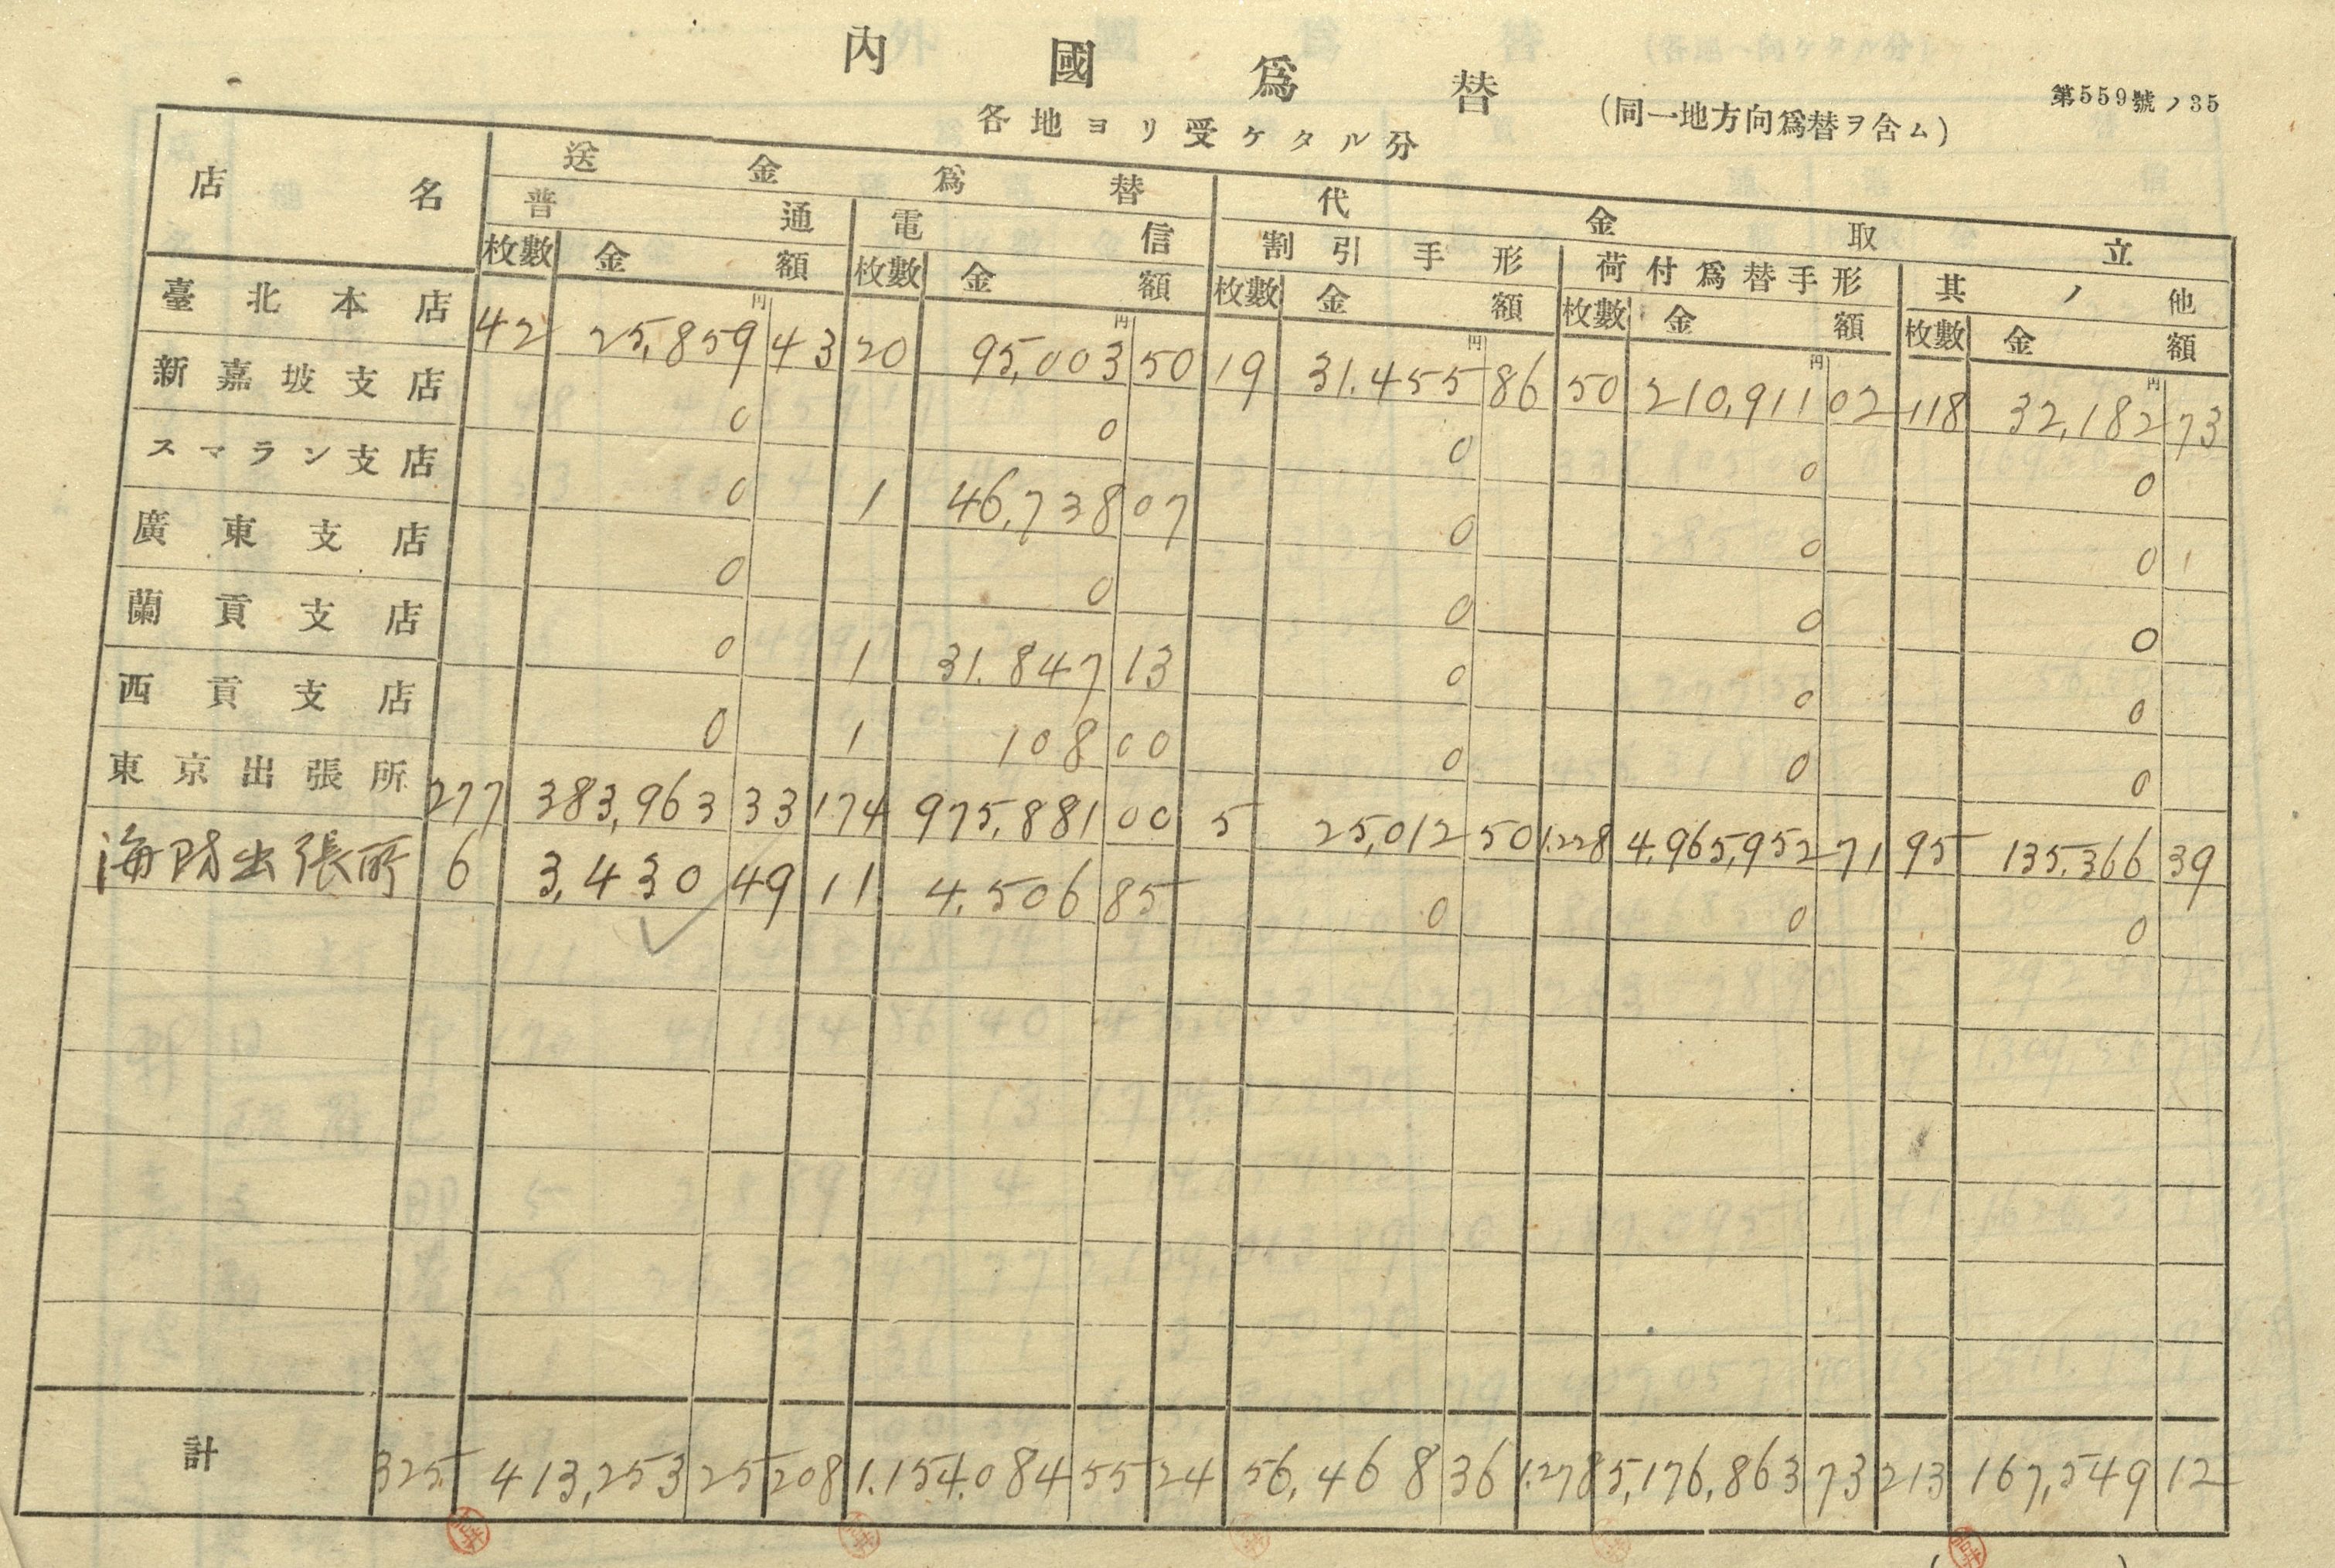 內國爲替
第559號ノ35
各地ヨリ受ケタル分 (同一地方向爲替ヲ含ム)
店名 送金爲替 代金取立
普通 電信 割引手形 荷付爲替手形 其ノ他
枚數 金額 枚數 金額 枚數 金額 枚數 金額 枚數 金額
円 円 円 円 円
臺北本店 42 25,859 43 20 95,003 50 19 31.455 86 50 210,911 02 118 32,182 73
新嘉坡支店 0 0 0 0 0
スマラン支店 0 1 46,738 07 0 0 0
廣東支店 0 0 0 0 0
蘭貢支店 0 1 31.847 13 0 0 0
西貢支店 0 1 108 00 0 0 0
東京出張所 277 383,963 33 174 975,881 00 5 25,012 50 1.228 4,965,952 71 95 135,366 39
海防出張所 6 3,430 49 11 4.506 85 0 0 0
計 325 413,253 25 208 1.154.084 55 24 56,468 36 1.278 5,176,863 73 213 167,549 12